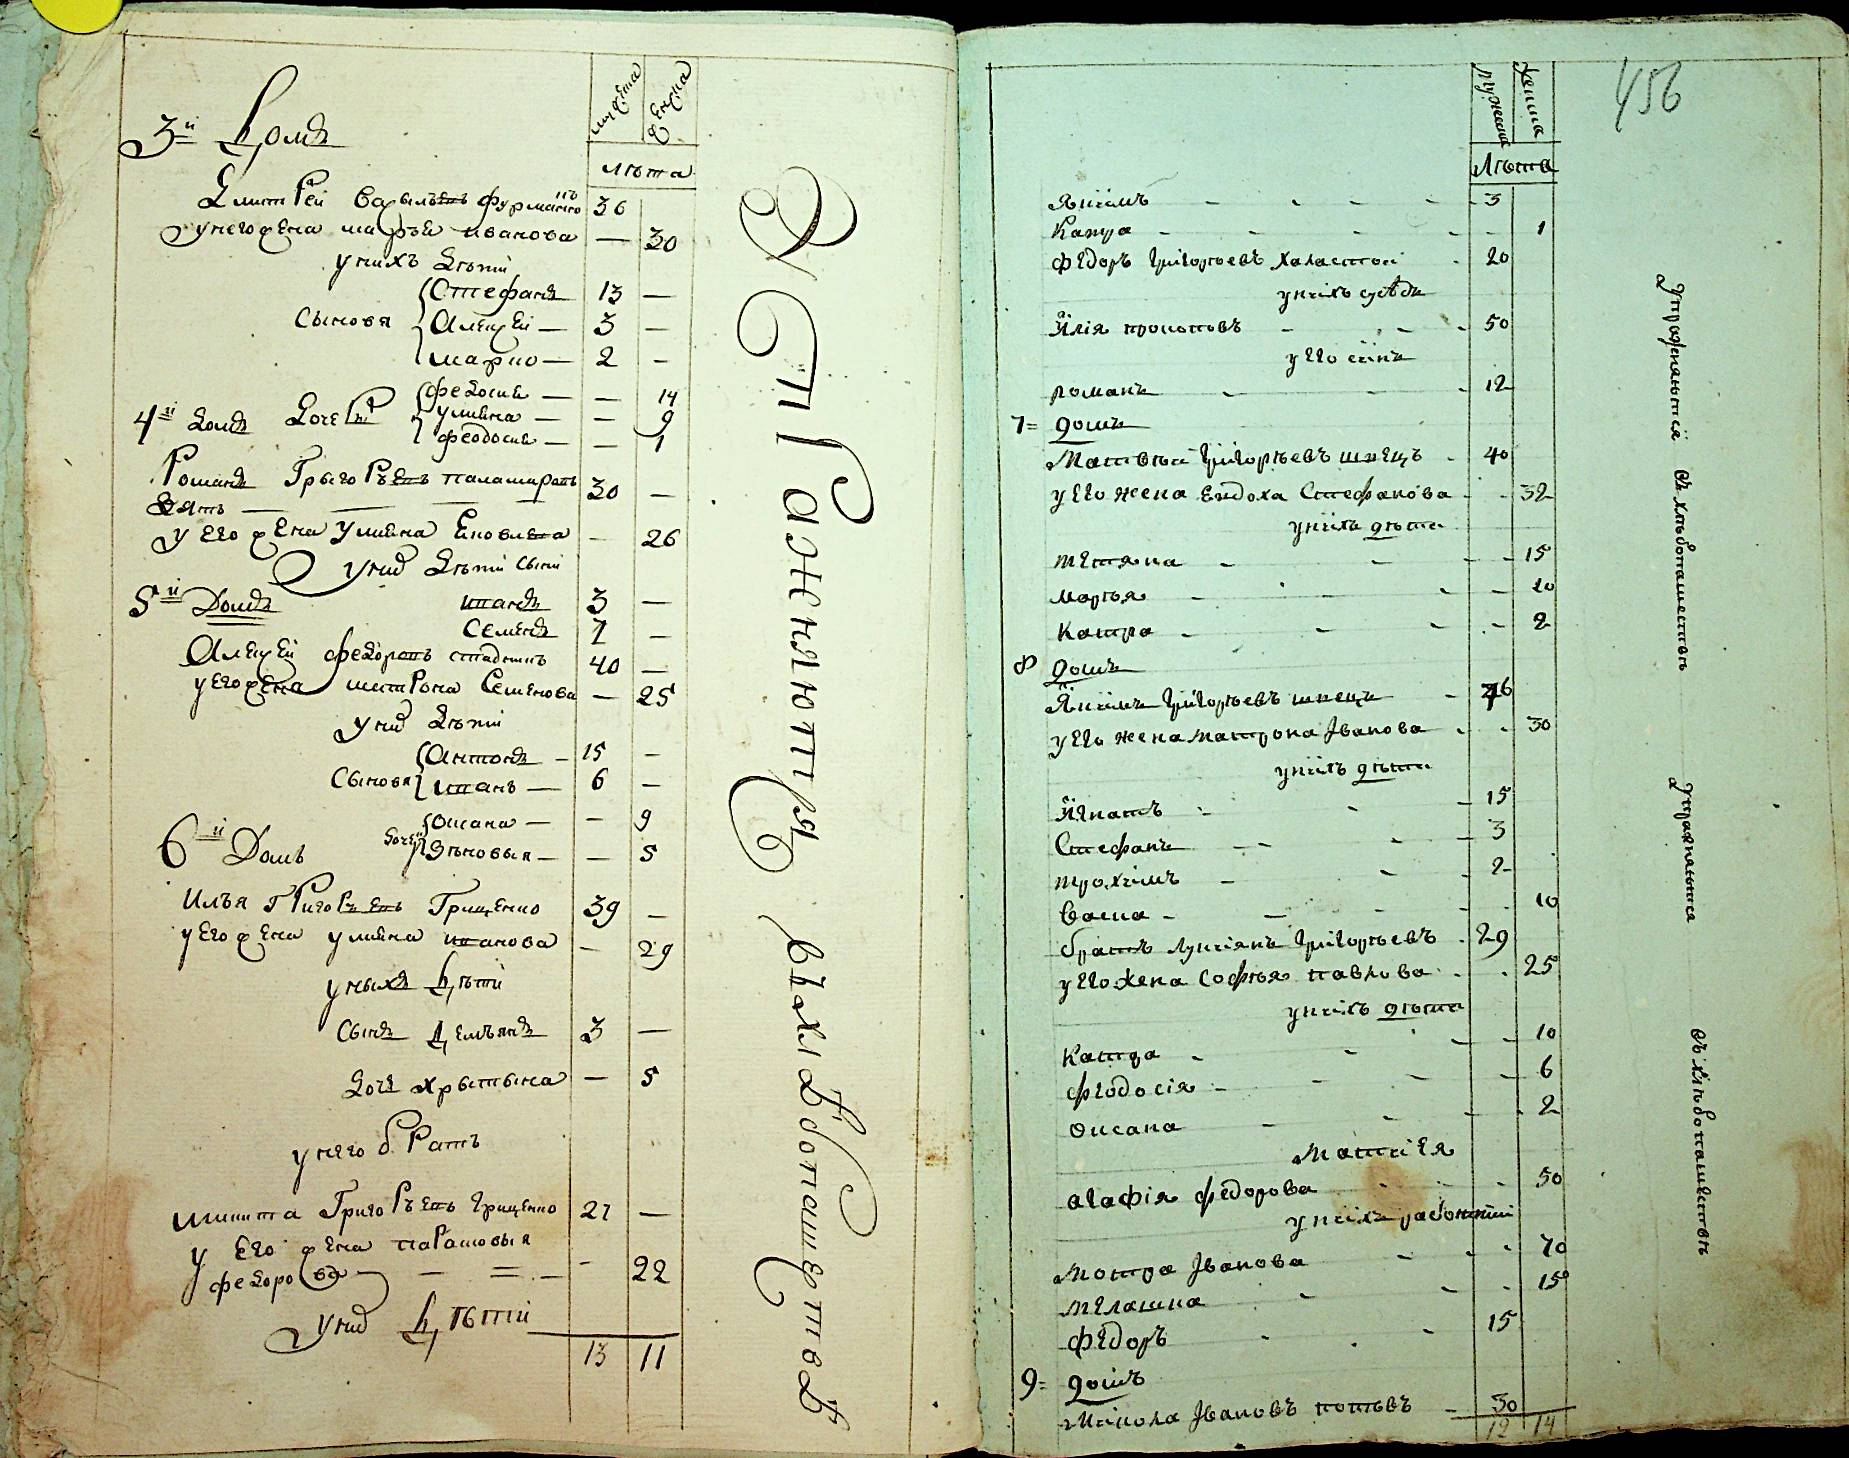 мужеска
женска
лѣта
3й Домъ
Дмитрей Василъевъ Фурманко 36
у него жена Марья иванова — 30
у нихъ дѣти
Стефанъ 13 —
Сыновя Алексей — 3 —
Марко — 2 —
Федосия — — 14
4й домъ Дочери Улияна — — 9
Феодосия — — 1
Романъ Грыгоръевъ Паламаръ 30 —
Зять —
у его жена Улияна — 26
у них дѣти сыни
5й Домъ иванъ 3 —
Семенъ 1 —
Алексей Федоровъ 40 —
у его жена митрона Семенова — 25
у них дѣти
Антонъ — 15 —
Сыновя иванъ — 6 —
Оксана — — 9
6й Домъ дочери Зѣновыя — — 5
Илъя Григоръевъ Грищенко 39 —
у его жена улияна иванова — 29
у ныхъ дѣти
Сынъ Демъянъ 3 —
Доче хрыстына — 5
у него братъ
Микита Григоръевъ Грищенко 27 —
у его жена парасковыя
Федорова — — — 22
у них дѣти
13 11
Упражняются въ хлѣбопашествѣ
456
мужеска
женска
Лѣта
Якимъ - - - - 3
Катря - - - - - 1
Федоръ Григорьевъ Халастой - 20
у нихъ сусѣди
Илія прокоповъ - - - 50
у его синъ
романъ - - - 12
7= домъ
Матвѣй Григорьевъ швецъ - 40
у его жена Евдоха Стефанова - - 32
у нихъ дѣти
тетяна - - - - 15
марья - - - - 10
Катря - - - - 2
8 домъ
Якимъ Григорьевъ швецъ - 46
у его жена матрона Іванова - - 30
у нихъ дѣти
Игнатъ - - - 15
Стефанъ - - - 3
трохимъ - - - 2
Васка - - - - 10
братъ Лукіянъ Григорьевъ - 29
у его жена Софья павлова - - 25
у нихъ дѣти
Катря - - - - 10
феодосія - - - - 6
оксана - - - - 2
Мати Ея
агафія федорова - - - 50
у нихъ работники
Мотря Іванова - - - 70
мелашка - - - 15
федоръ - - 15
9= домъ
Микола Івановъ - 30
12 14
Упражняются въ хлѣбопашествѣ
Упражняются въ хлѣбопашествѣ